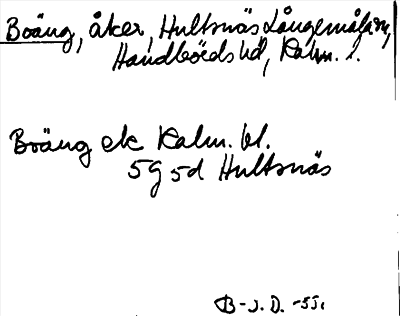 Boäng, åker, Hultsnäs Långemåla sn,
Handbörds hd, Kalm. l.
Boäng ek Kalm. bl.
5g 5d Hultsnäs
B-J.D. -55.